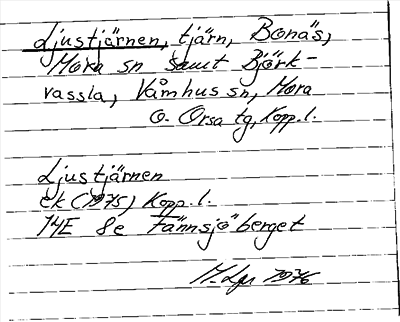 Ljustjärnen, tjärn, Bonäs,
Mora sn samt Björk-
vassla, Våmhus sn, Mora
o. Orsa tg, Kopp. l.
Ljustjärnen
ek (1975) Kopp. l.
14E 8e Fännsjöberget
1976